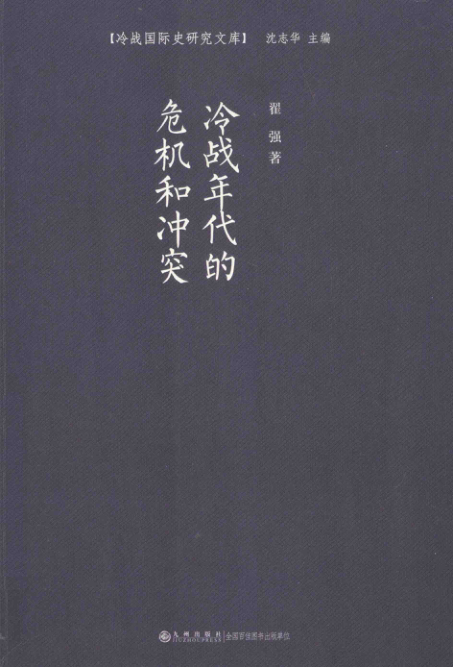 【冷战国际史研究文库】 沈志华 主编
冷战年代的
危机和冲突
翟强著
九州出版社 全国百佳图书出版单位
JIUZHOUPRESS